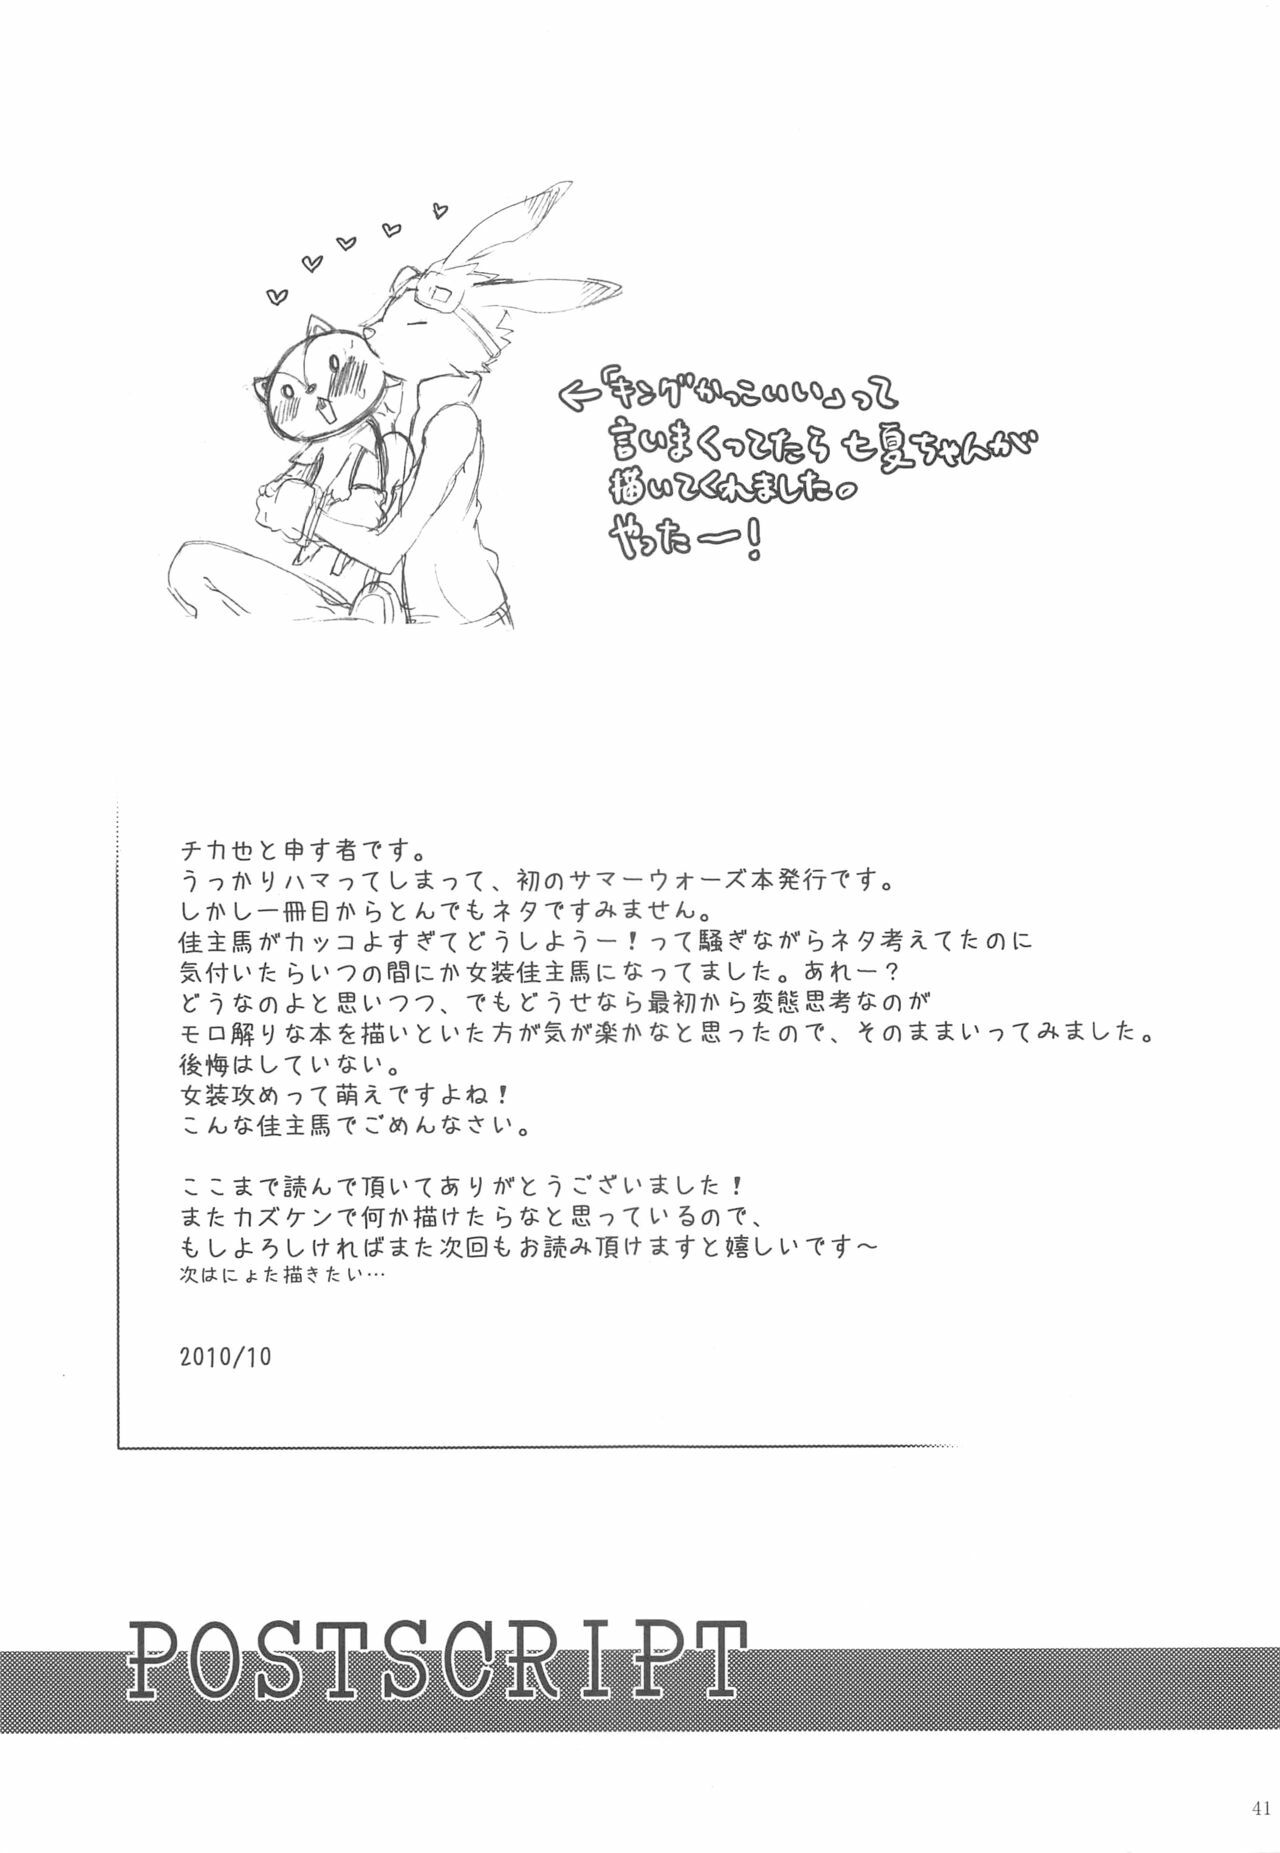 ←「キングかっこいい」って
言いまくってたら七夏ちゃんが
描いてくれました。
やったー!
チカ也と申す者です。
うっかりハマってしまって、初のサマーウォーズ本発行です。
しかし一冊目からとんでもネタですみません。
佳主馬がカッコよすぎてどうしようー!って騒ぎながらネタ考えてたのに
気付いたらいつの間にか女装佳主馬になってました。あれー?
どうなのよと思いつつ、でもどうせなら最初から変態思考なのが
モロ解りな本を描いといた方が気が楽かなと思ったので、そのままいってみました。
後悔はしていない。
女装攻めって萌えですよね!
こんな佳主馬でごめんなさい。
ここまで読んで頂いてありがとうございました!
またカズケンで何か描けたらなと思っているので、
もしよろしければまた次回もお読み頂けますと嬉しいです～
次はにょた描きたい…
2010/10
POSTSCRIPT
41